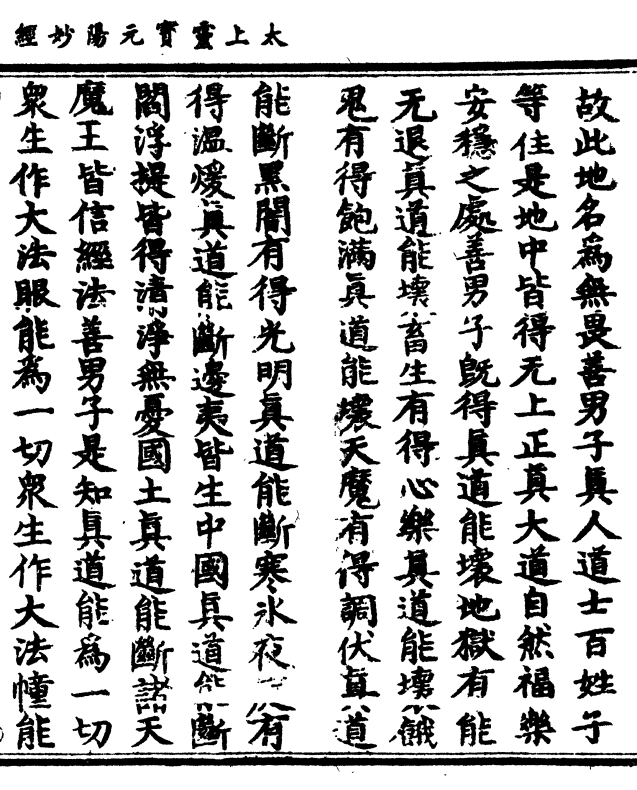 太上靈寶元陽妙經
故此地名為無畏善男子真人道士百姓子
等住是地中皆得无上正真大道自然福樂
安穩之處善男子既得真道能壞地獄有能
无退真道能壞畜生有得心樂真道能壞餓
鬼有得飽滿真道能壞天魔有得調伏真道
能斷黑闇有得光明真道能斷寒氷夜有
得溫煖真道能斷邊夷皆生中國真道能斷
閻浮提皆得清淨無憂國土真道能斷諸天
魔王皆信經法善男子是知真道能為一切
眾生作大法眼能為一切眾生作大法幢能